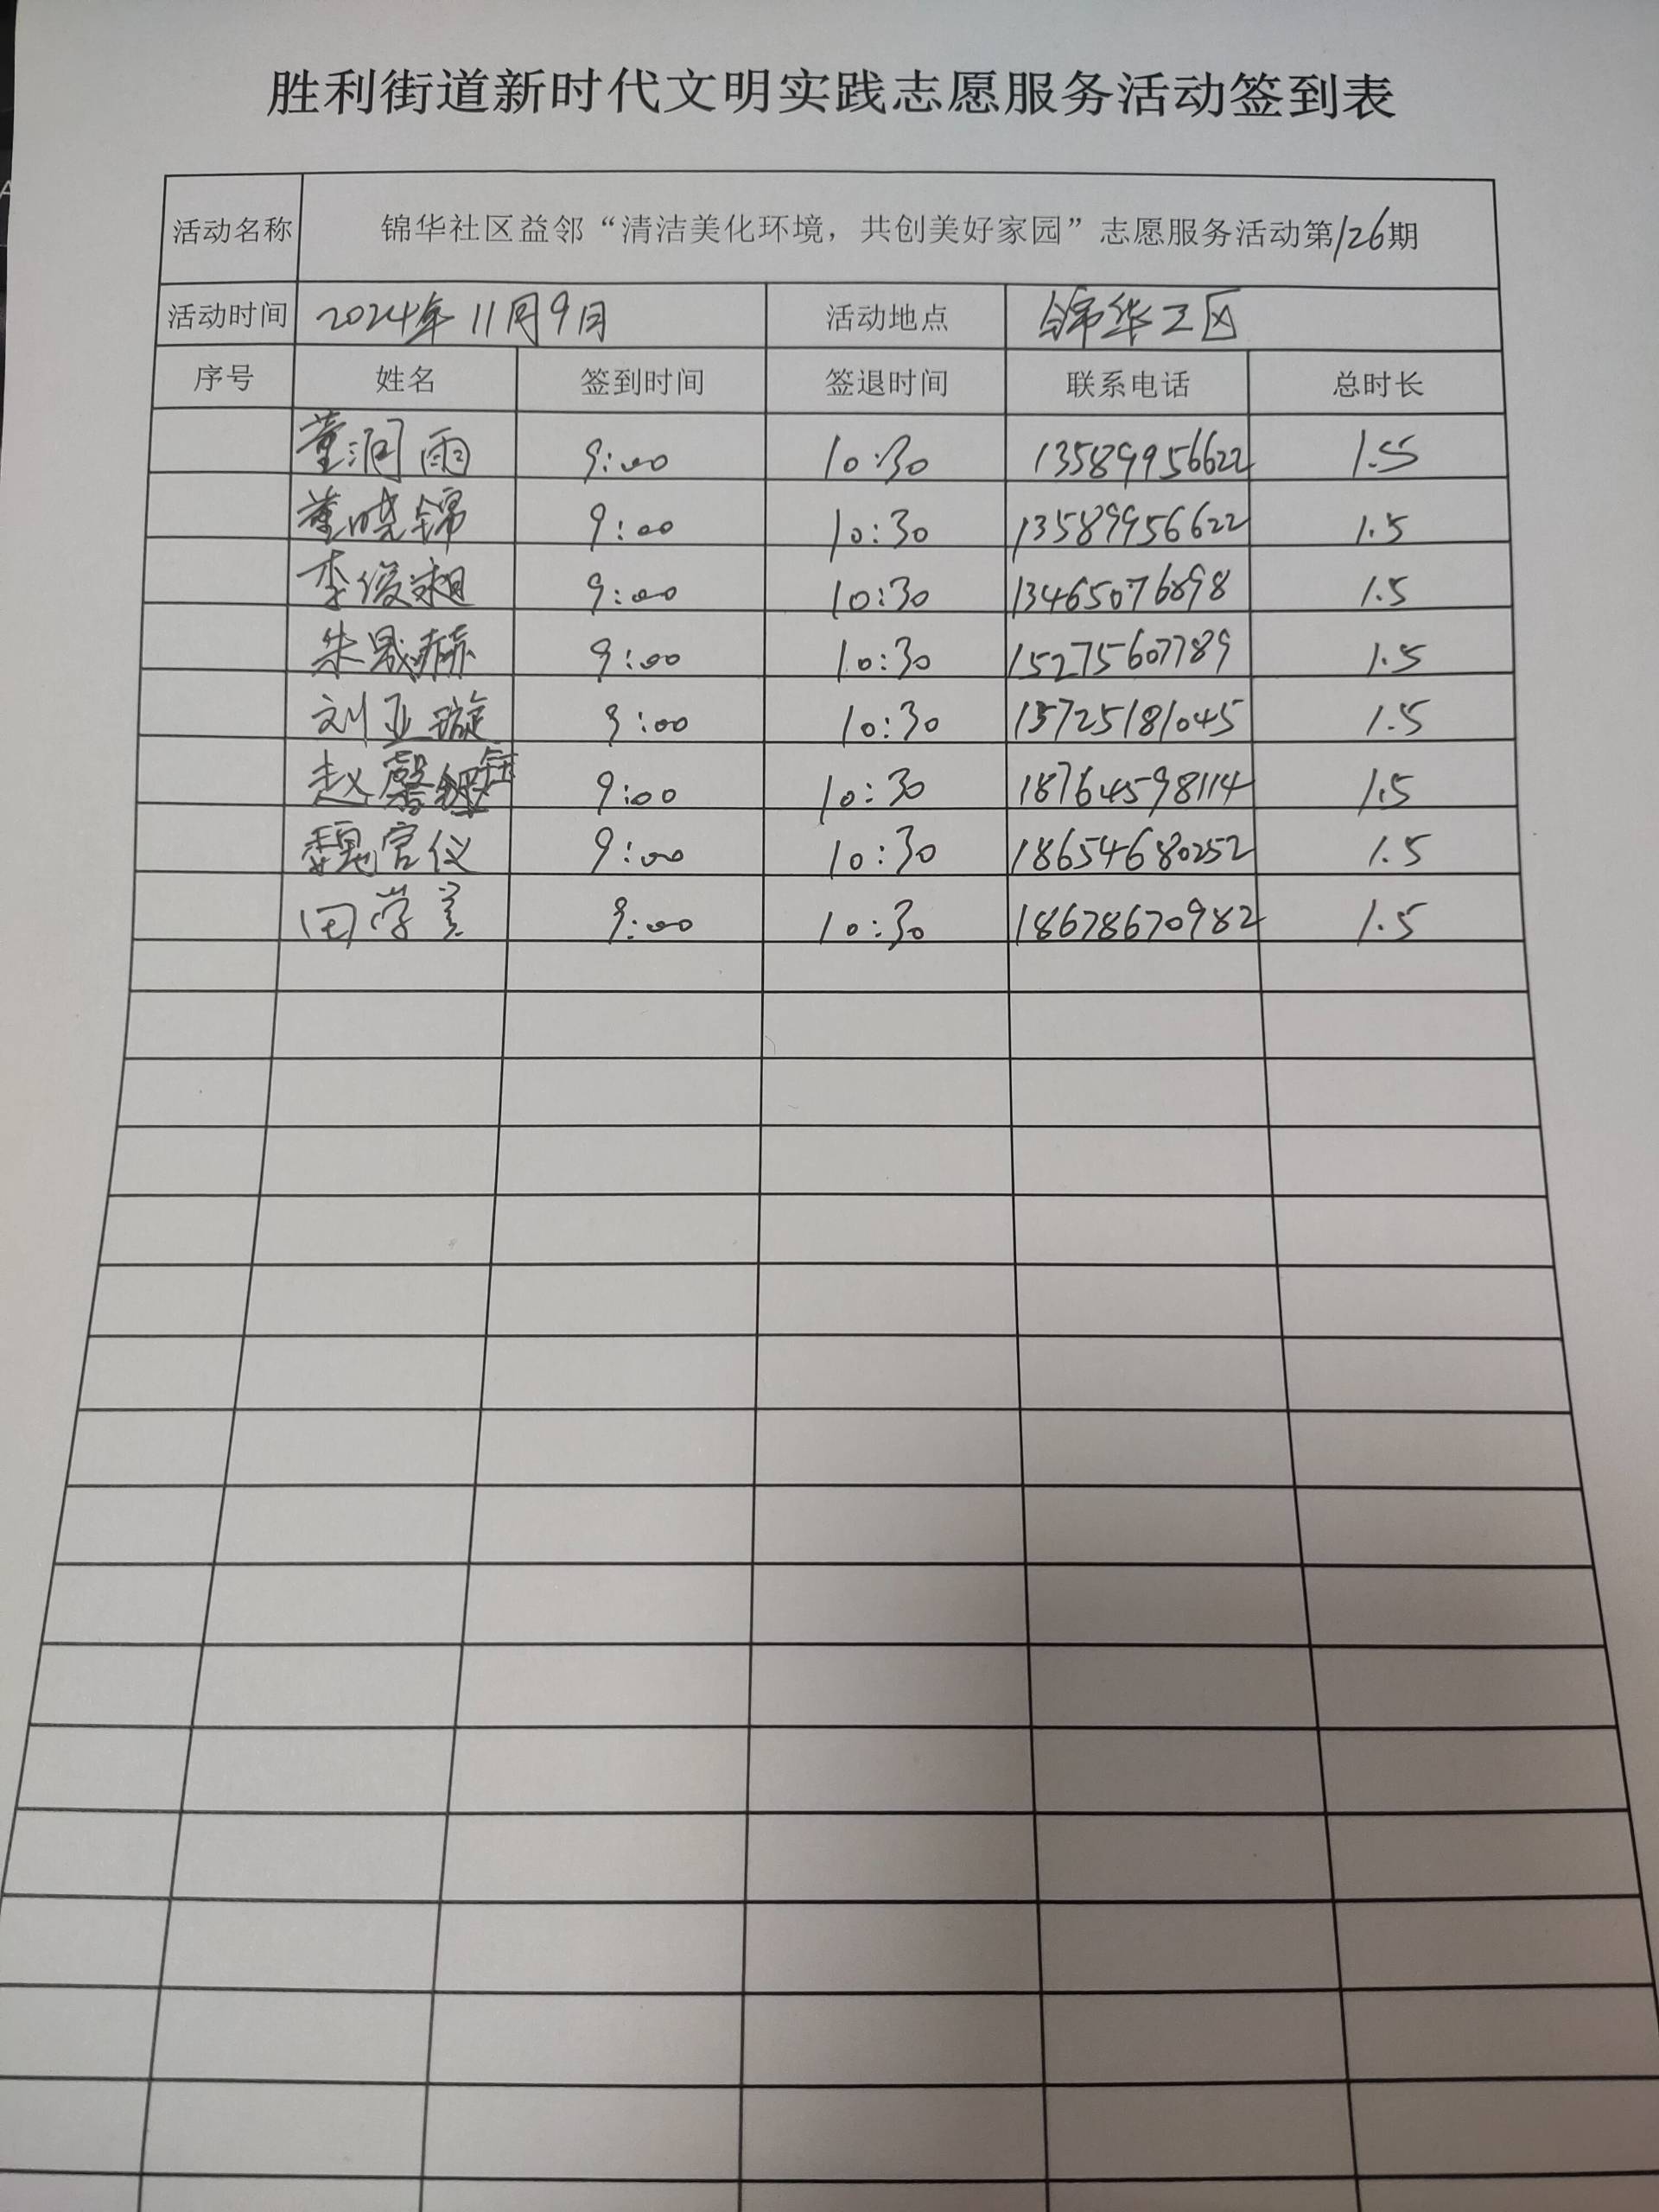 胜利街道新时代文明实践志愿服务活动签到表
活动名称 锦华社区益邻“清洁美化环境，共创美好家园”志愿服务活动第126期
活动时间 2024年11月9日 活动地点 锦华三区
序号 姓名 签到时间 签退时间 联系电话 总时长
董润雨 9:00 10:30 13589956622 1.5
董晓锦 9:00 10:30 13589956622 1.5
李俊湘 9:00 10:30 13465076898 1.5
朱晟赫 9:00 10:30 15275607789 1.5
刘亚璇 9:00 10:30 13725181045 1.5
赵馨钰 9:00 10:30 18764598114 1.5
魏官仪 9:00 10:30 18654680252 1.5
田学美 9:00 10:30 18678670982 1.5